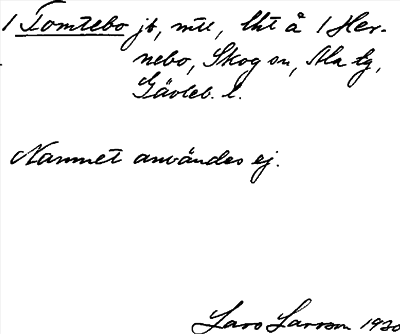 1 Tomtebo jb, mtl, lht å 1 Her-
nebo, Skog sn, Ala tg,
Gävleb. l.
Namnet användes ej.
Lars Larsson 1920